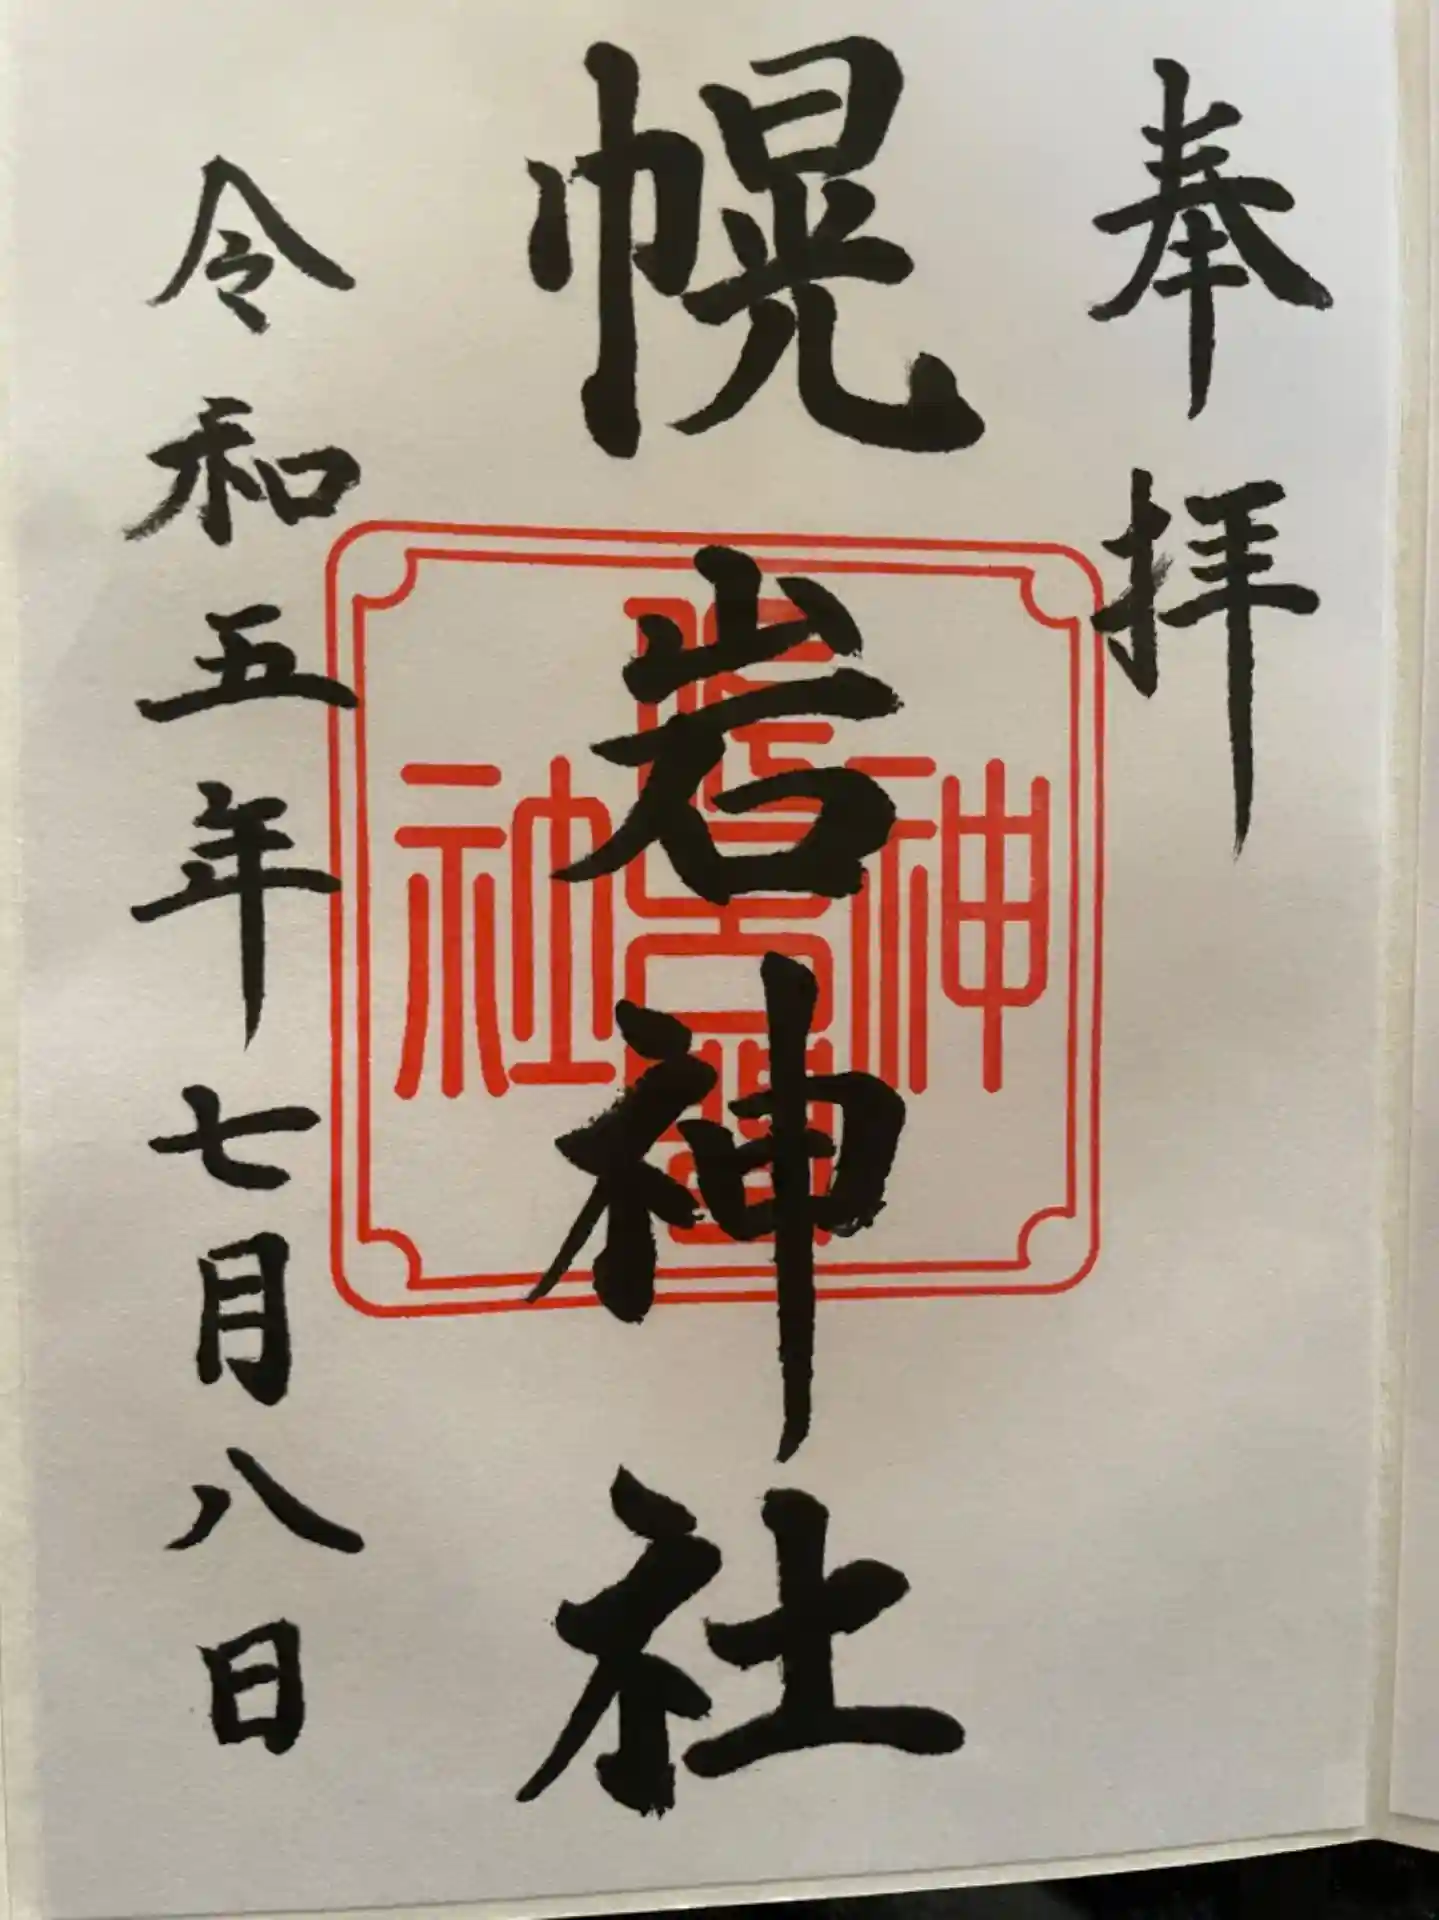 奉拝
幌岩神社
神
社
令和五年七月八日